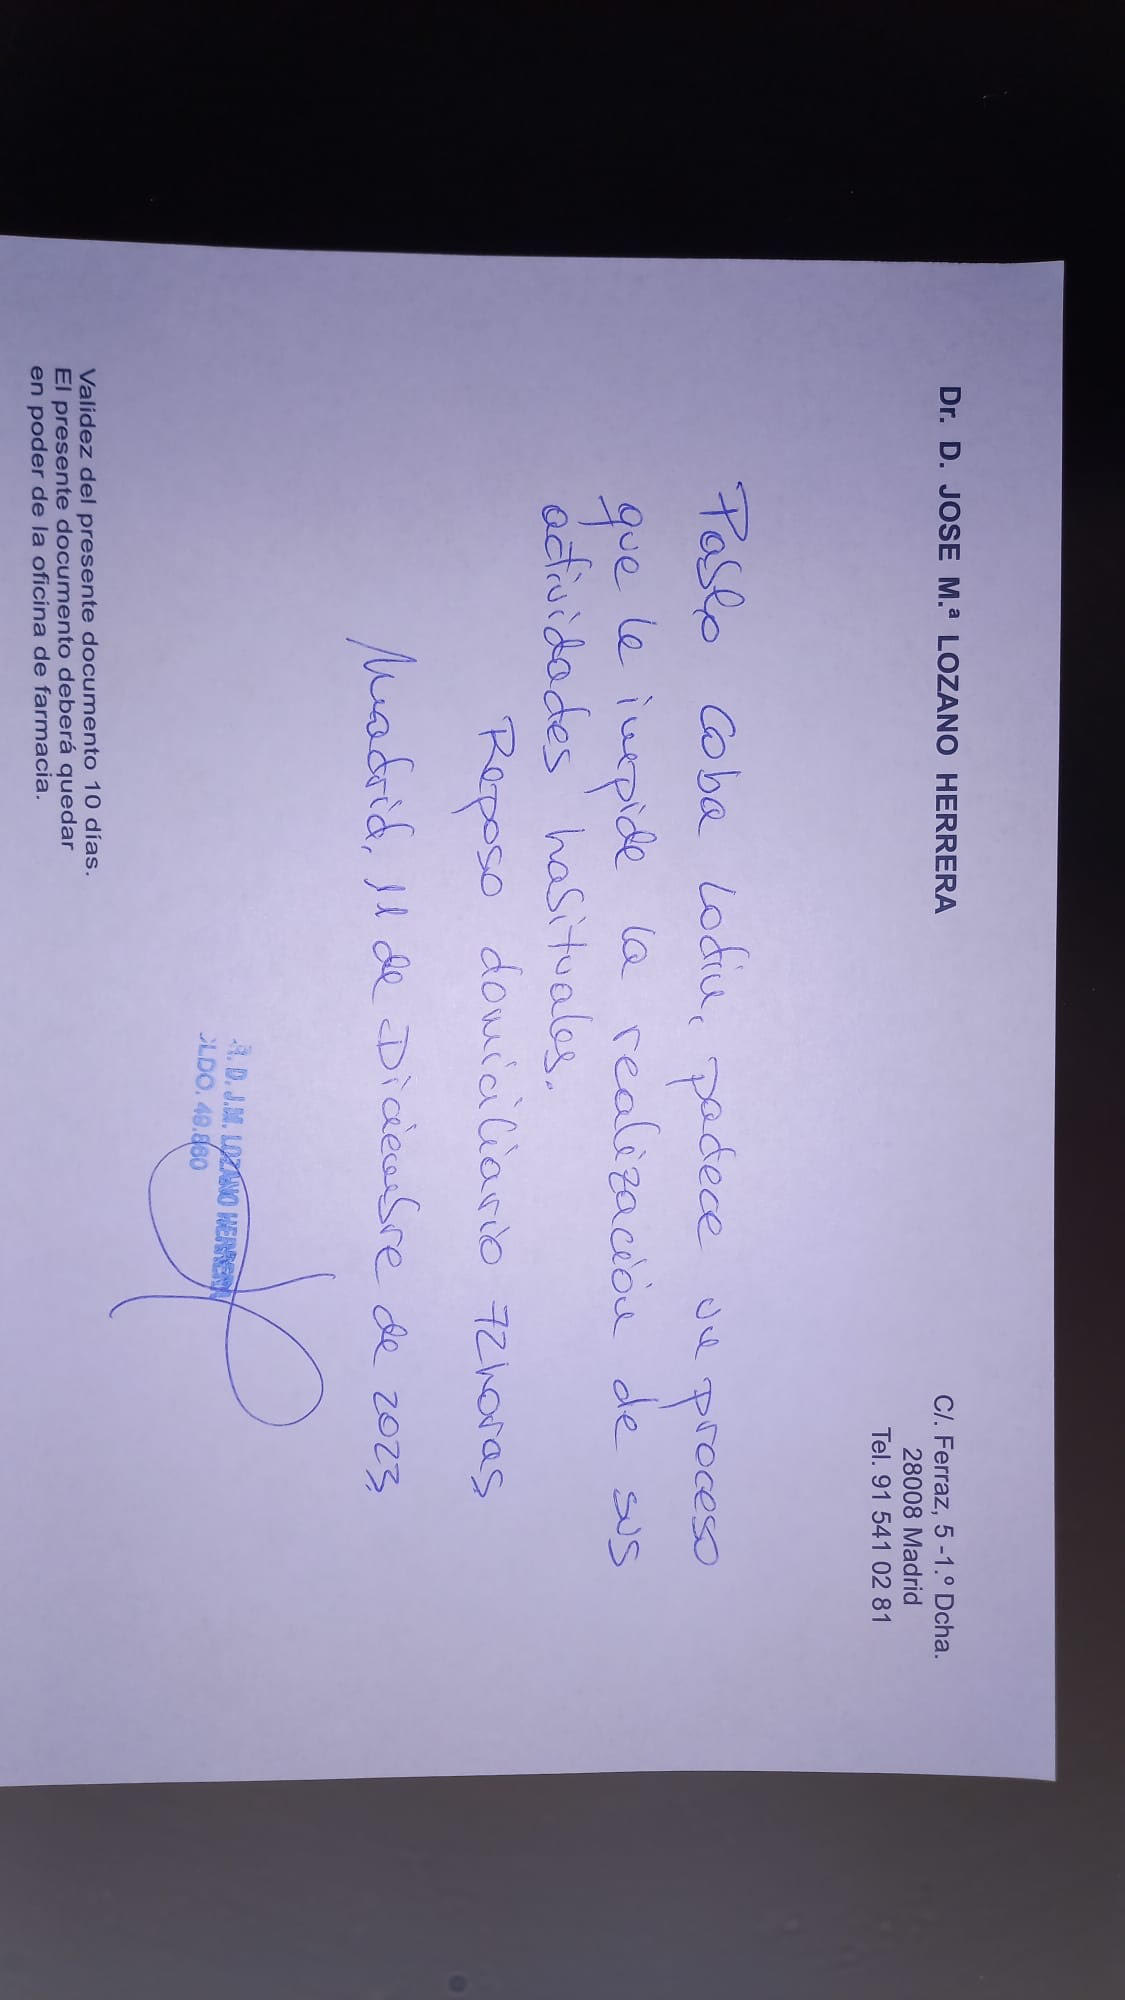 Dr. D. JOSE M.ª LOZANO HERRERA
C/. Ferraz, 5 -1.º Dcha.
28008 Madrid
Tel. 91 541 02 81
Pablo Coba Lodín, padece un proceso
que le impide la realización de sus
actividades habituales.
Reposo domiciliario 72 horas
Madrid, 11 de Diciembre de 2023
R. D. J.M. LOZANO HERRERA
OLDO. 49.860
Validez del presente documento 10 días.
El presente documento deberá quedar
en poder de la oficina de farmacia.